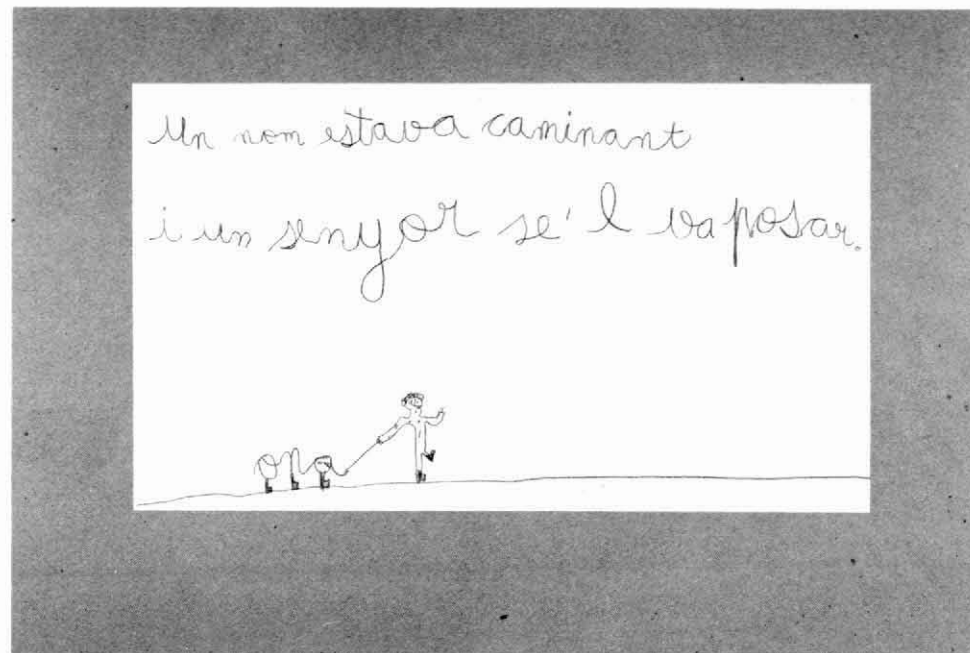 Un nom estava caminant
i un senyor se'l va posar.
ona